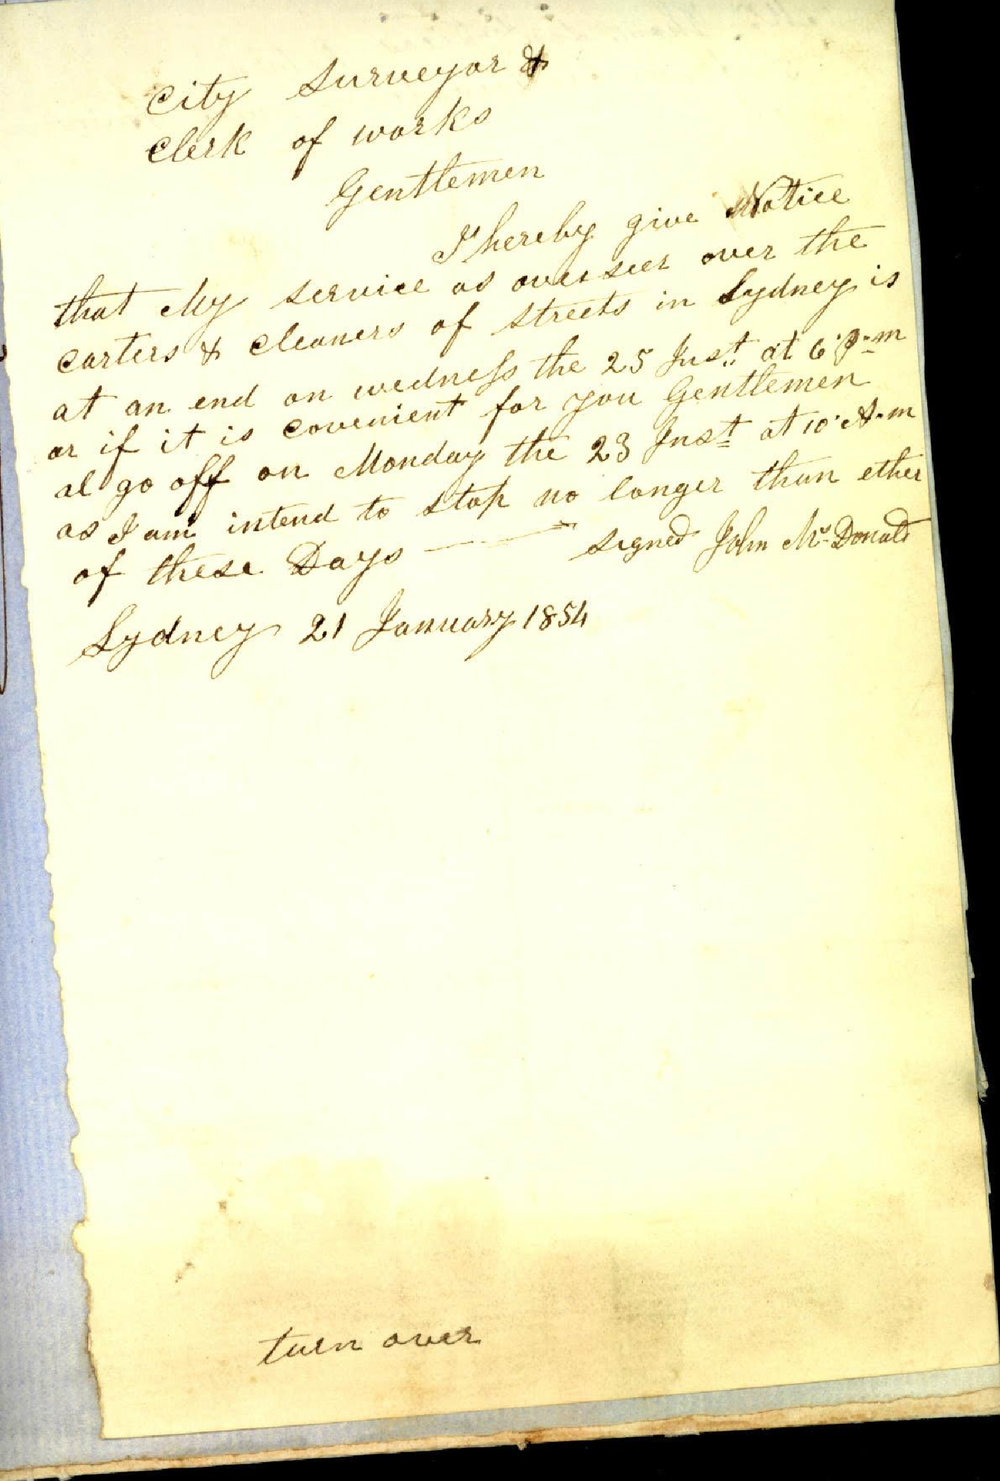 City Surveyor &
Clerk of works
Gentlemen
I hereby give Notice
that My service as overseer over the
carters & cleaners of streets in Sydney is
at an end on wedness the 25 Inst at 6 p.m
or if it is covenient for you Gentlemen
al go off on Monday the 23 Inst at 10 A.m
as I am intend to stop no longer than ether
of these Days — signed John Mc Donald
Sydney 21 January 1854
turn over